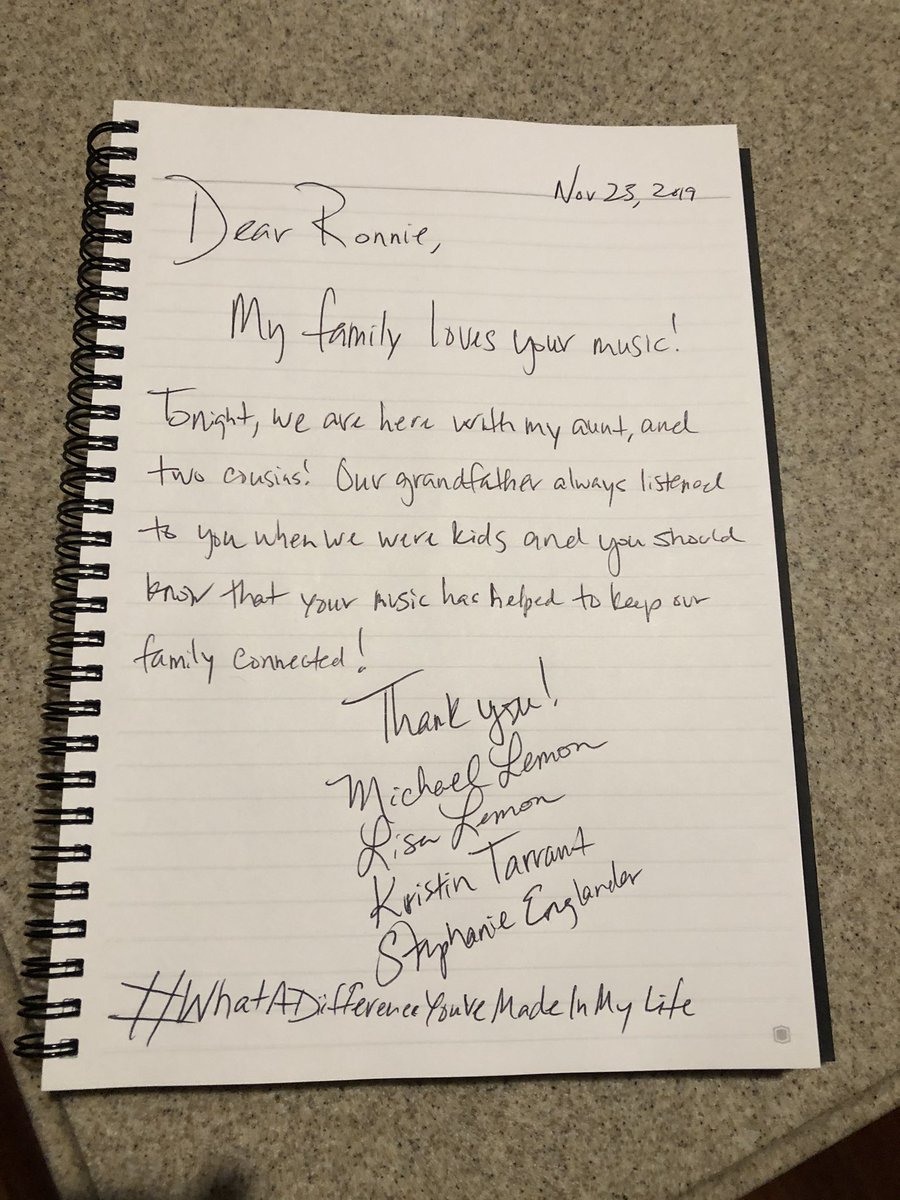 Nov 23, 2019
Dear Ronnie,
My family loves your music!
Tonight, we are here with my aunt, and
two cousins! Our grandfather always listened
to you when we were kids and you should
know that your music has helped to keep our
family connected!
Thank you!
Michael Lemon
Lisa Lemon
Kristin Tarrant
Stephanie Englander
#WhatADifferenceYou'veMadeInMyLife